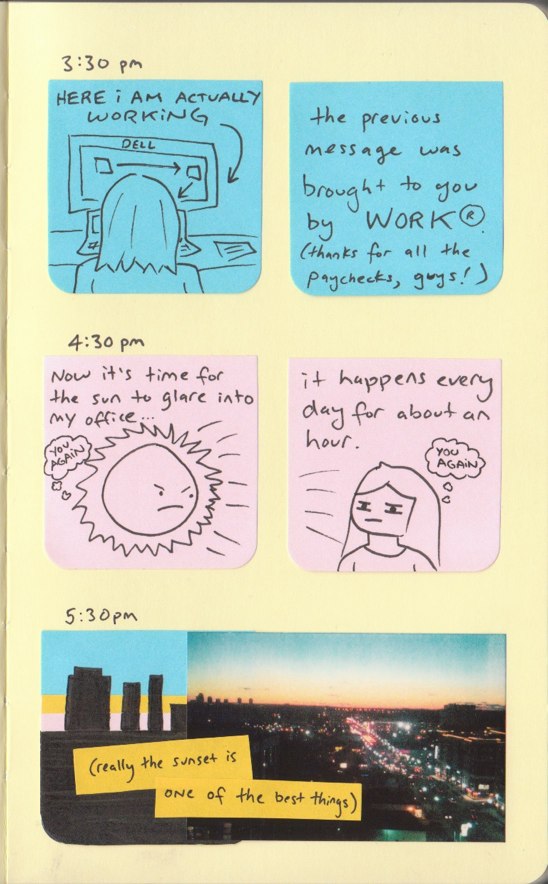 3:30 pm
HERE i AM ACTUALLY
WORKING
DELL
the previous
message was
brought to you
by WORK®.
(thanks for all the
paychecks, guys!)
4:30 pm
Now it's time for
the sun to glare into
my office...
YOU
AGAiN
it happens every
day for about an
hour.
YOU
AGAiN
5:30pm
(really the sunset is
ONE of the best things)